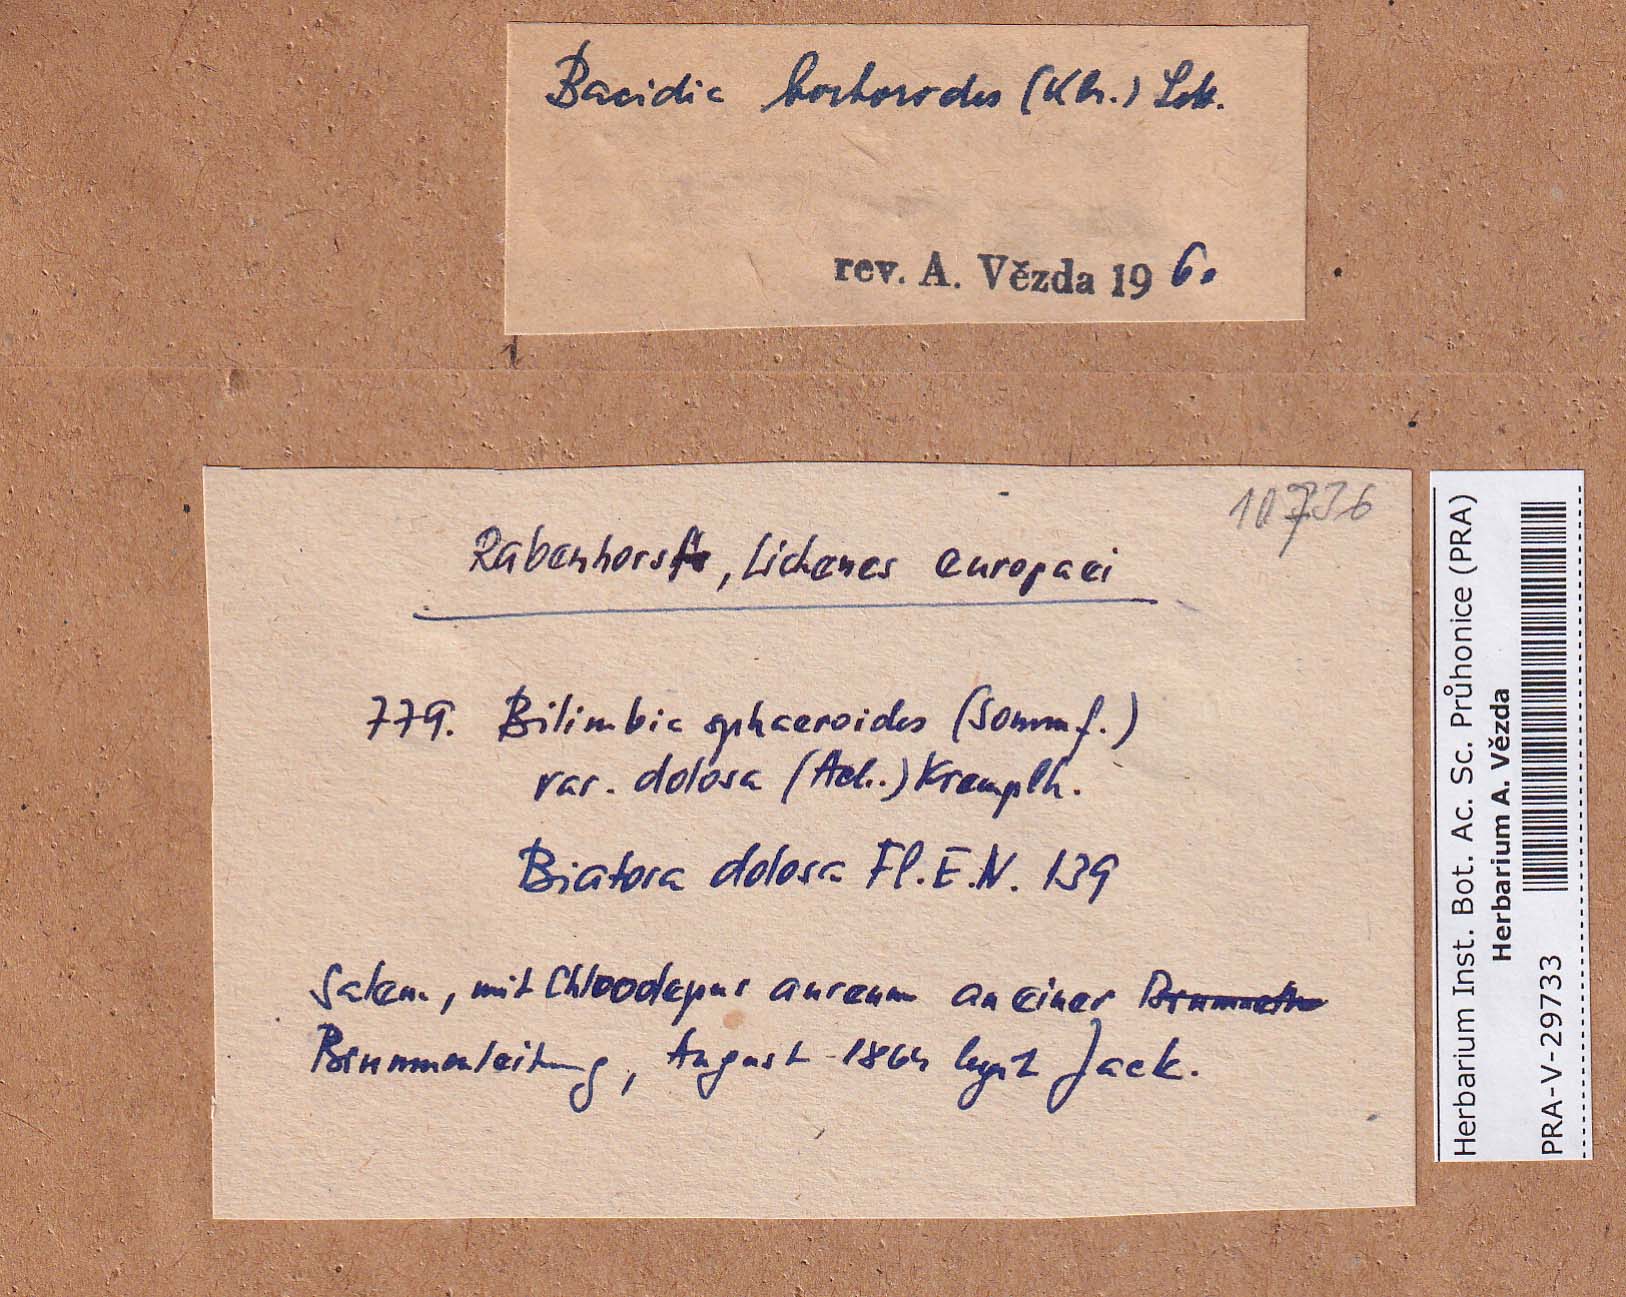 Bacidia borborodes (Kbr.) Lett.
rev. A. Vězda 1960
10736
Rabenhorst, Lichenes europaei
779. Bilimbia sphaeroides (Sommf.)
var. dolosa (Ach.) Krempelh.
Biatora dolosa Fl. E. N. 139
Salem, mit Chroolepus aureum an einer
Brunnenleitung, August 1864 legit Jack.
Herbarium Inst. Bot. Ac. Sc. Průhonice (PRA)
Herbarium A. Vězda
PRA-V-29733